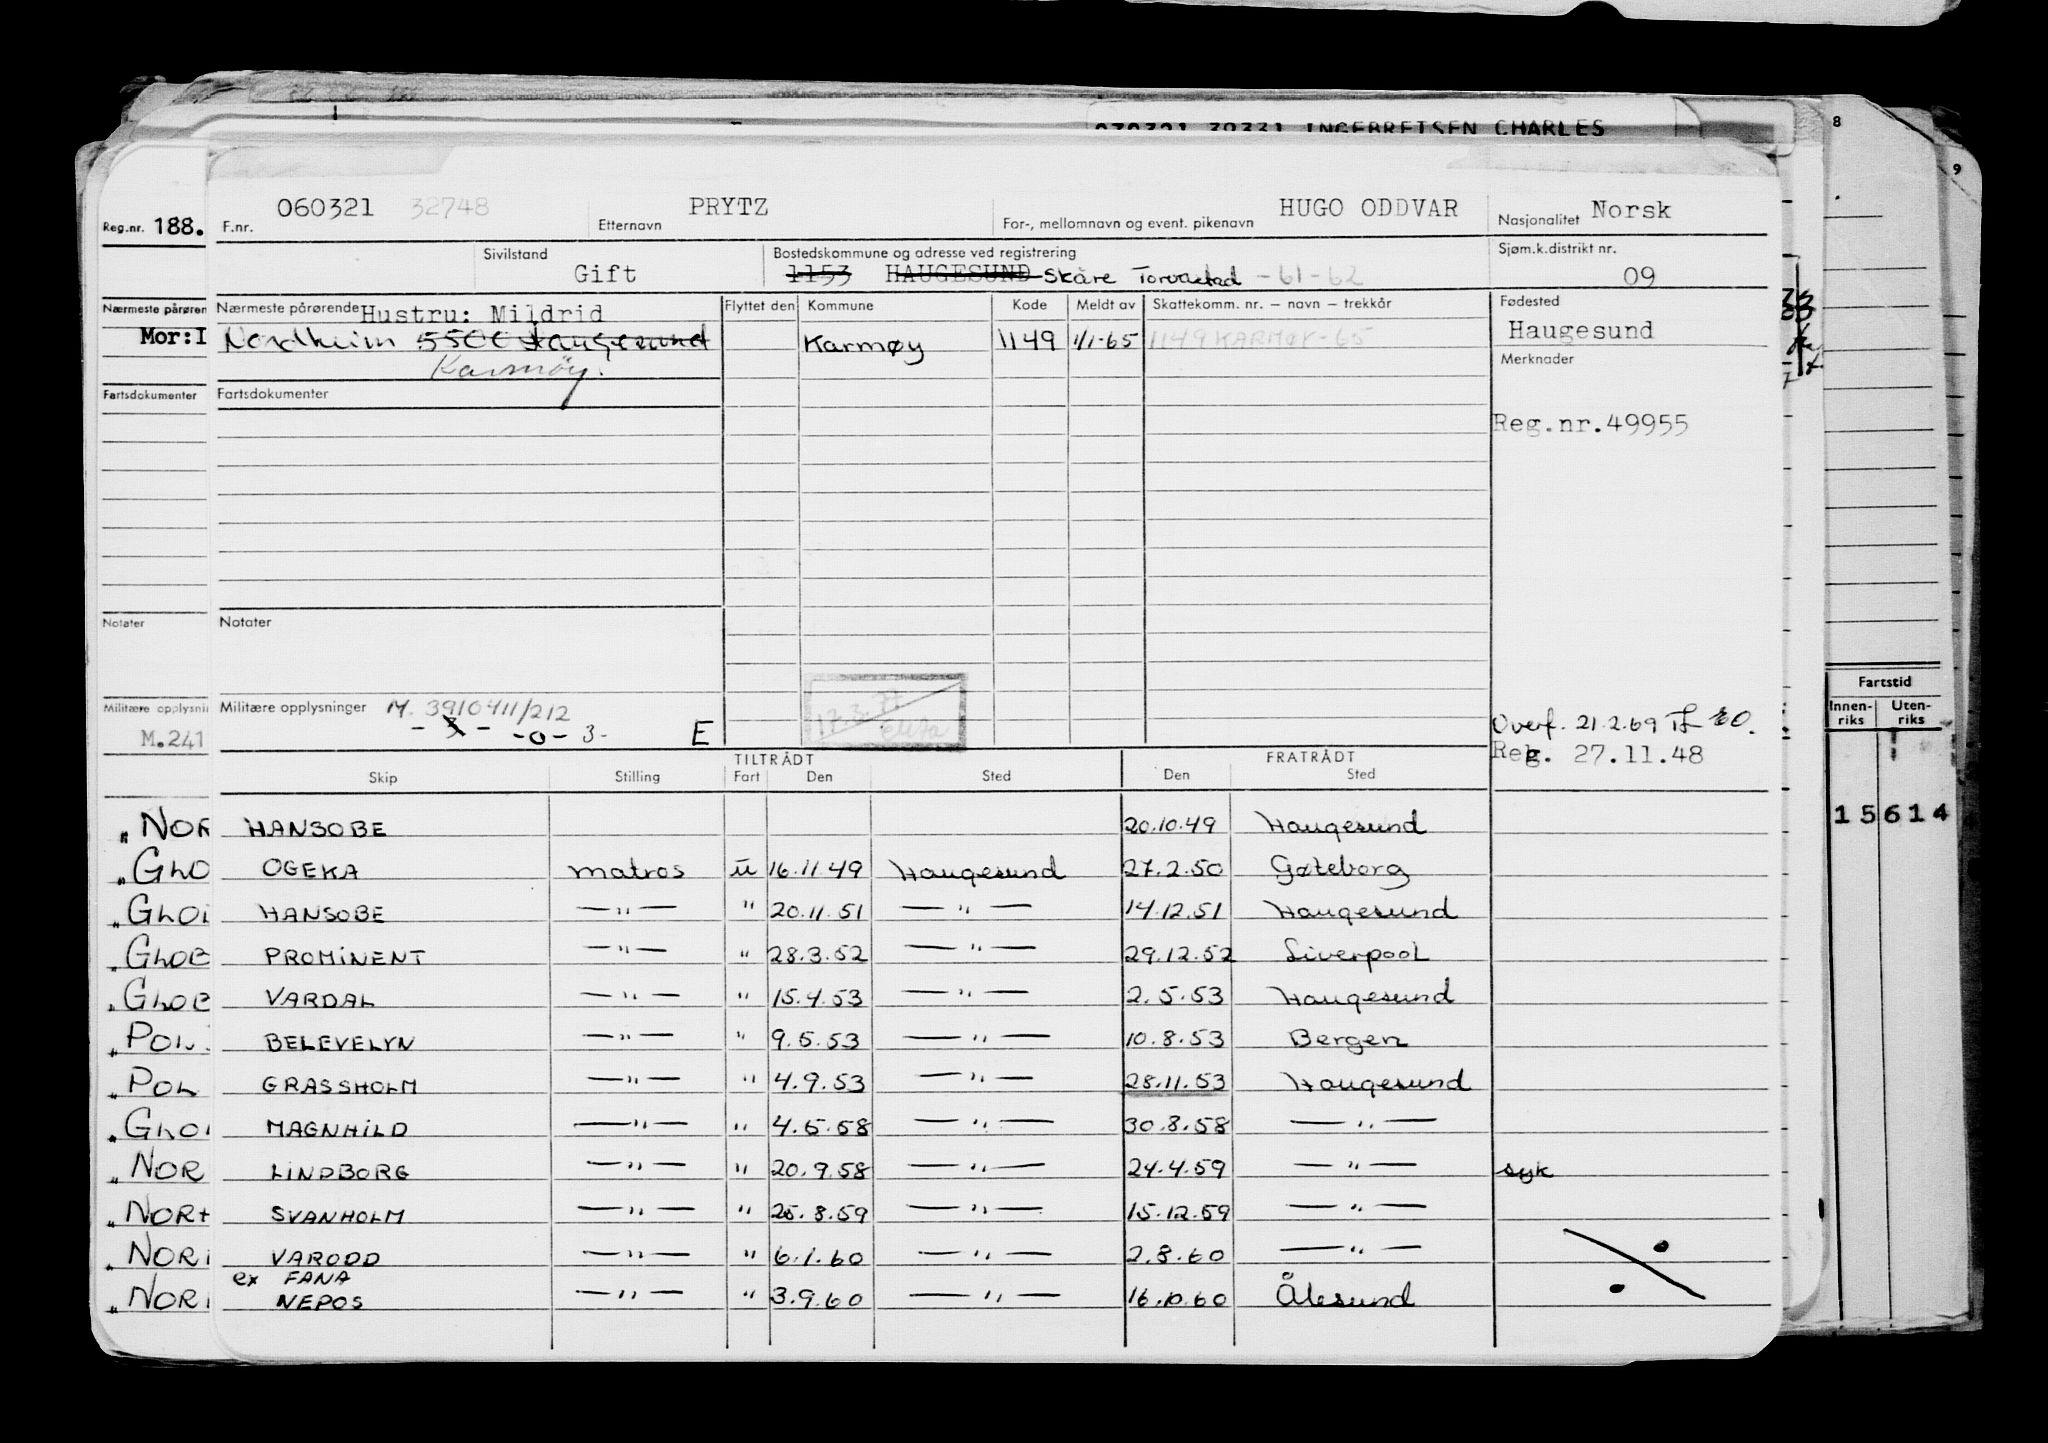 030321 39331 INGEBRETSEN CHARLES
8
9
Reg.nr. 188.
F.nr. 060321 32748 Etternavn PRYTZ For-, mellomnavn og event. pikenavn HUGO ODDVAR Nasjonalitet Norsk
Sivilstand Gift Bostedskommune og adresse ved registrering 1153 HAUGESUND Skåre Torvastad -61-62 Sjøm.k.distrikt nr. 09
Nærmeste pårøren
Mor: I
Nærmeste pårørende Hustru: Mildrid
Nordheim 5500 Haugesund
Karmøy.
Flyttet den Kommune Kode Meldt av Skattekomm. nr. – navn – trekkår
Karmøy 1149 1/1-65 1149 KARMØY-65
Fødested
Haugesund
Merknader
Reg.nr.49955
Fartsdokumenter
Fartsdokumenter
Notater
Notater
Militære opplysnin
M.241
Militære opplysninger M. 3910411/212
-0- 3- E
17.3.77
Overf. 21.2.69
Reg. 27.11.48
Fartstid
Innen-riks Uten-riks
15614
TILTRÅDT FRATRÅDT
Skip Stilling Fart Den Sted Den Sted
" NOR HANSOBE 20.10.49 Haugesund
" GLO OGEKA matros u 16.11.49 Haugesund 27.2.50 Gøteborg
" GLO HANSOBE —"— " 20.11.51 —"— 14.12.51 Haugesund
" GLOB PROMINENT —"— " 28.3.52 —"— 29.12.52 Liverpool
" GLOB VARDAL —"— " 15.4.53 —"— 2.5.53 Haugesund
" POL BELEVELYN —"— " 9.5.53 —"— 10.8.53 Bergen
" POL GRASSHOLM —"— " 4.9.53 —"— 28.11.53 Haugesund
" GLO MAGNHILD —"— " 4.5.58 —"— 30.8.58 —"—
" NOR LINDBORG —"— " 20.9.58 —"— 24.4.59 —"— syk
" NOR SVANHOLM —"— " 25.8.59 —"— 15.12.59 —"—
" NOR VARODD —"— " 6.1.60 —"— 2.8.60 —"—
ex FANA
" NOR NEPOS —"— " 3.9.60 —"— 16.10.60 Ålesund